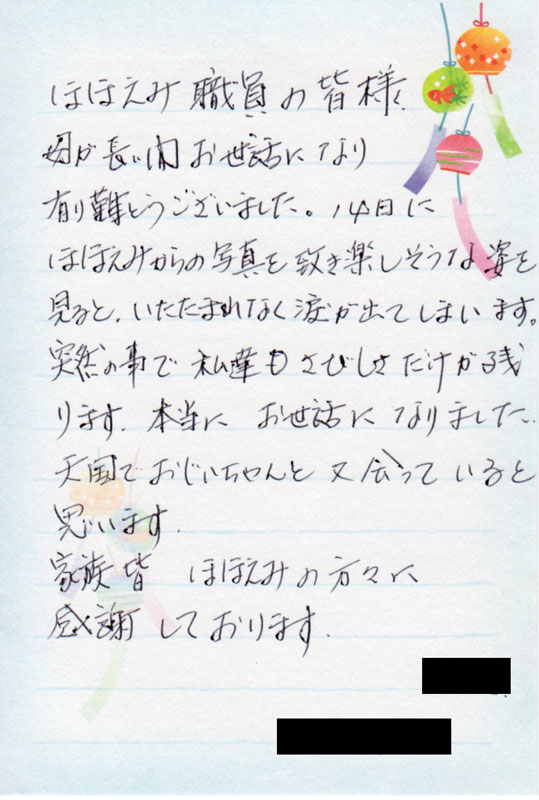 ほほえみ 職員の皆様
母が長い間 お世話になり
有り難とうございました。14日に
ほほえみからの写真を致き楽しそうな姿を
見ると、いたたまれなく涙が出てしまいます。
突然の事で 私輩もさびしさだけが残
ります。本当に お世話になりました。
天国でおじいちゃんと又会っていると
思います。
家族皆 ほほえみの方々に
感謝しております。